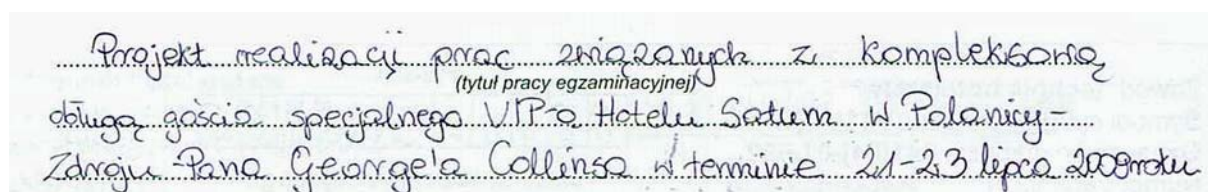 Projekt realizacji prac związanych z kompleksową
(tytuł pracy egzaminacyjnej)
obługą gościa specjalnego VIP-a Hotelu Saturn w Polanicy-
Zdroju - Pana George'a Collinsa w terminie 21-23 lipca 2009roku